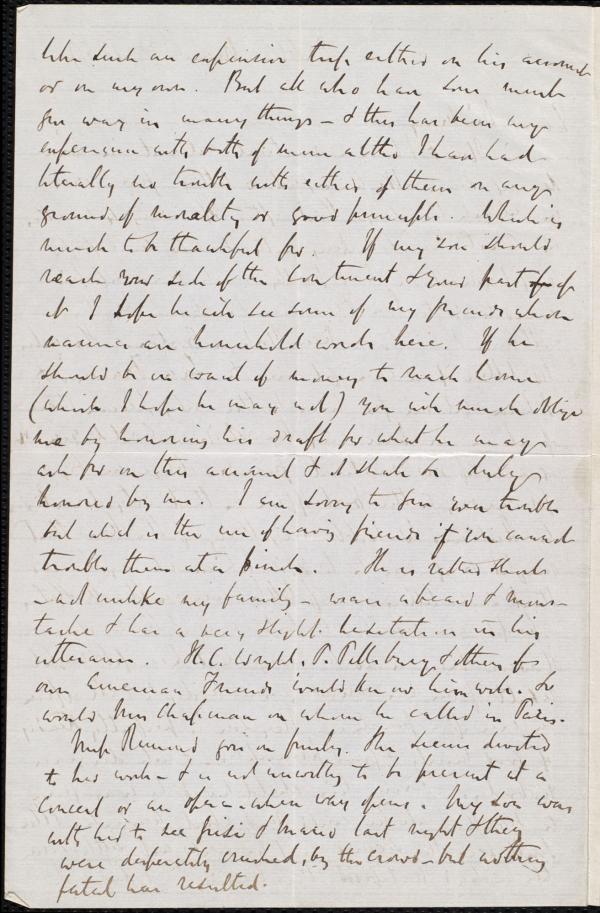 like such an expensive trip either on his account
or on my own. But all who have sons must
give way in many things - & this has been my
experience with both of mine altho I have had
literally no trouble with either of them on any
ground of morality or good principle. Which is
much to be thankful for. If my son should
reach your side of the Continent & your part of
it I hope he will see some of my friends whose
names are household words here. If he
should be in want of money to reach home
(which I hope he may not) you will much oblige
me by honoring his draft for what he may
ask for on this account & it shall be duly
honored by me. I am sorry to give you trouble
but what is the use of having friends if you cannot
trouble them at a pinch. He is rather short
- not unlike my family - wears a beard & mous-
tache & has a very slight hesitation in his
utterance. H. C. Wright, P. Pillsbury & others of
our American Friends would know him well. So
would Mrs Chapman on whom he called in Paris.
Miss Remond goes on finely. She seems devoted
to her work - & is not unworthy to be present at a
Concert or an opera when way opens. My son was
with her to see Grisi & Mario last night & they
were desperately crushed, by the crowd - but nothing
fatal has resulted.